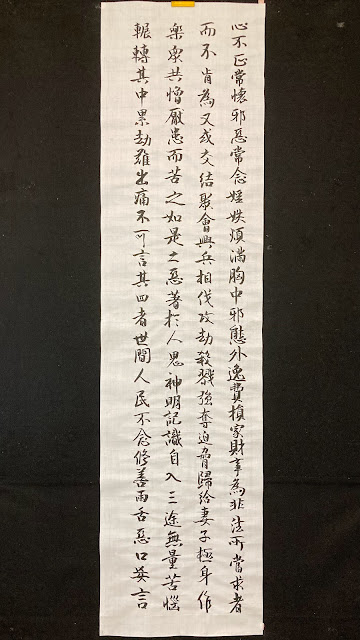 心不正常懷邪惡常念婬妷煩滿胸中邪態外逸費損家財事為非法所當求者
而不肯為又或交結聚會興兵相伐攻劫殺戮強奪迫脅歸給妻子極身作
樂眾共憎厭患而苦之如是之惡著於人鬼神明記識自入三途無量苦惱
輾轉其中累劫難出痛不可言其四者世間人民不念修善兩舌惡口妄言